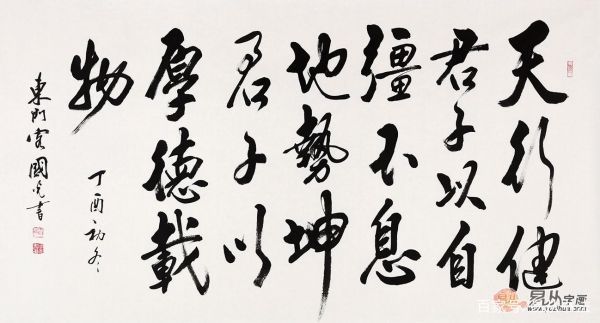 天行健
君子以自
彊不息
地勢坤
君子以
厚德載
物
丁酉初冬
東 國 書
易从字画